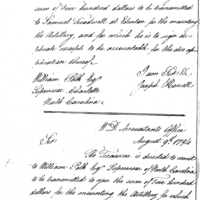 sum of five hundred dollars to be transmitted
to Samuel Treadwell at Edenton for the mounting
the Artillery, and for which he is to sign
receipts to be accountable for the due
application thereof.
I am Sir &c
William Polk Esqr
Joseph Howell
Supervisor, Charlotte
North Carolina
W. D. Accountants Office
Sir August 9th 1794
The Treasurer is directed to remit
to William Polk Esqr Supervisor of North Carolina
to be transmitted to you the sum of five hundred
dollars for the mounting the Artillery for which